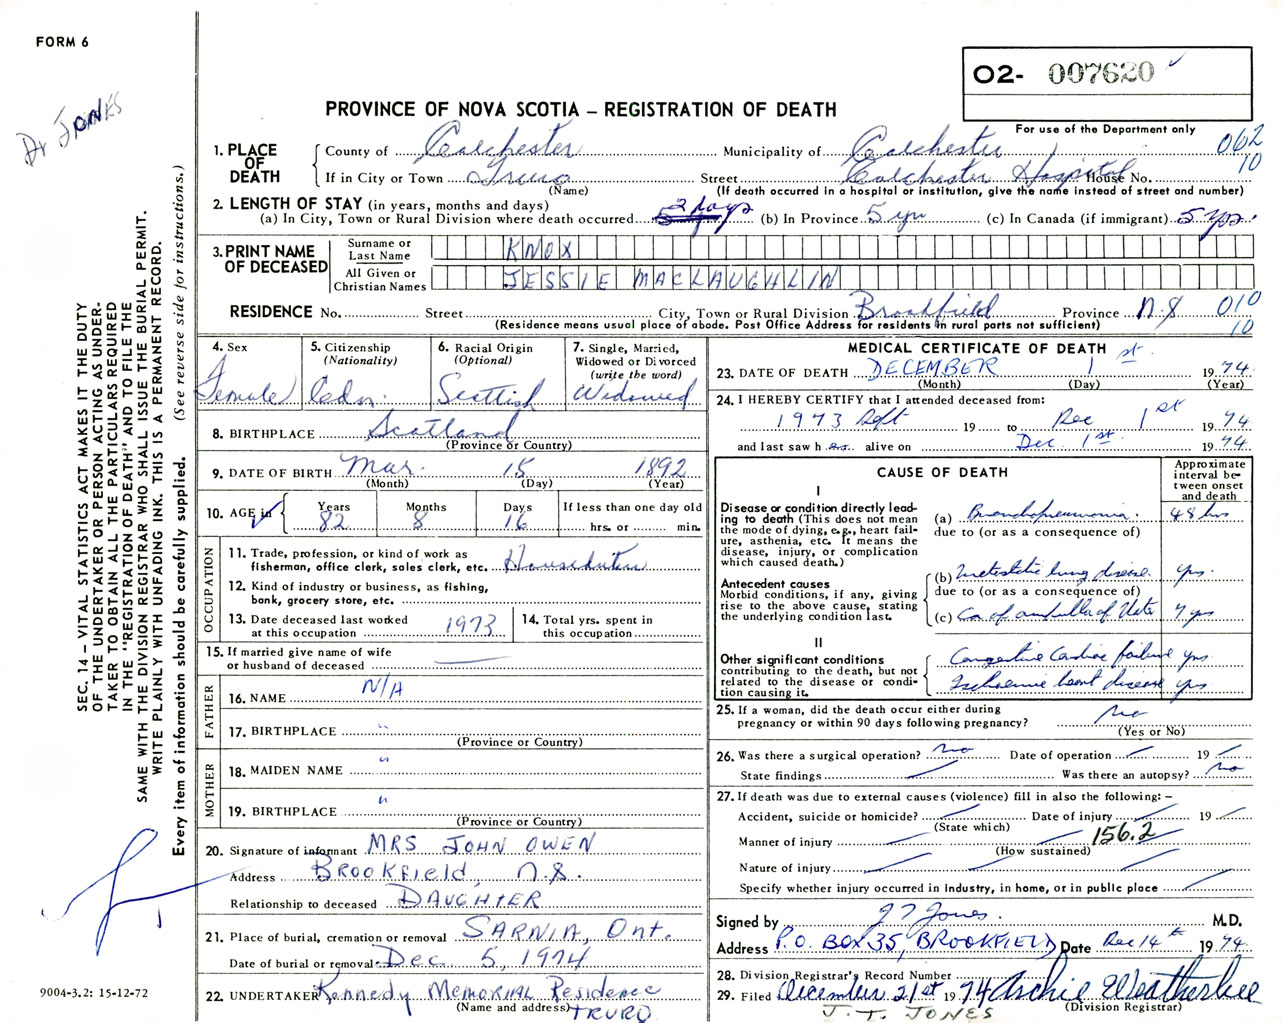 FORM 6
Dr JONES
O2- 007620
PROVINCE OF NOVA SCOTIA – REGISTRATION OF DEATH
For use of the Department only
062
10
1. PLACE OF DEATH
County of Colchester Municipality of Colchester
If in City or Town Truro Street Colchester Hospital House No.
(Name) (If death occurred in a hospital or institution, give the name instead of street and number)
2. LENGTH OF STAY (in years, months and days)
(a) In City, Town or Rural Division where death occurred 2 days (b) In Province 5 yrs (c) In Canada (if immigrant) 5 yrs.
3. PRINT NAME OF DECEASED
Surname or Last Name KNOX
All Given or Christian Names JESSIE MACLAUGHLIN
RESIDENCE No. Street City, Town or Rural Division Brookfield Province N.S 010
10
(Residence means usual place of abode. Post Office Address for residents in rural parts not sufficient)
4. Sex
Female
5. Citizenship
(Nationality)
Cdn.
6. Racial Origin
(Optional)
Scottish
7. Single, Married,
Widowed or Divorced
(write the word)
Widowed
8. BIRTHPLACE Scotland
(Province or Country)
9. DATE OF BIRTH Mar. 15 1892
(Month) (Day) (Year)
10. AGE in
Years Months Days If less than one day old
82 8 16 hrs. or min.
OCCUPATION
11. Trade, profession, or kind of work as
fisherman, office clerk, sales clerk, etc.
12. Kind of industry or business, as fishing,
bank, grocery store, etc.
13. Date deceased last worked
at this occupation 1973
14. Total yrs. spent in
this occupation
15. If married give name of wife
or husband of deceased
FATHER
16. NAME N/A
17. BIRTHPLACE "
(Province or Country)
MOTHER
18. MAIDEN NAME "
19. BIRTHPLACE "
(Province or Country)
20. Signature of informant MRS JOHN OWEN
Address BROOKFIELD, N.S.
Relationship to deceased DAUGHTER
21. Place of burial, cremation or removal SARNIA, Ont.
Date of burial or removal Dec. 5, 1974
22. UNDERTAKER Kennedy Memorial Residence
(Name and address) TRURO
MEDICAL CERTIFICATE OF DEATH
23. DATE OF DEATH DECEMBER 1st 1974
(Month) (Day) (Year)
24. I HEREBY CERTIFY that I attended deceased from:
1973 Sept 19 to Dec 1st 1974
and last saw h er alive on Dec. 1st 1974
CAUSE OF DEATH
Approximate
interval be-
tween onset
and death
I
Disease or condition directly lead-
ing to death (This does not mean
the mode of dying, e.g., heart fail-
ure, asthenia, etc. It means the
disease, injury, or complication
which caused death.)
(a) Bronchopneumonia. 48 hrs
due to (or as a consequence of)
Antecedent causes
Morbid conditions, if any, giving
rise to the above cause, stating
the underlying condition last.
(b) Metastatic lung disease yrs.
due to (or as a consequence of)
(c) Ca of ampulla of Vater 7 yrs
II
Other significant conditions
contributing to the death, but not
related to the disease or condi-
tion causing it.
Congestive Cardiac failure yrs
Ischaemic heart disease yrs
25. If a woman, did the death occur either during
pregnancy or within 90 days following pregnancy? no
(Yes or No)
26. Was there a surgical operation? no Date of operation 19
State findings Was there an autopsy? no
27. If death was due to external causes (violence) fill in also the following: –
Accident, suicide or homicide? Date of injury 19
(State which)
Manner of injury 156.2
(How sustained)
Nature of injury
Specify whether injury occurred in industry, in home, or in public place
Signed by J T Jones. M.D.
Address P.O. BOX 35, BROOKFIELD Date Dec 14th 1974.
28. Division Registrar's Record Number
29. Filed December 21st 1974 Archie Weatherbee
(Division Registrar)
J. T. JONES
SEC. 14 – VITAL STATISTICS ACT MAKES IT THE DUTY
OF THE UNDERTAKER OR PERSON ACTING AS UNDER-
TAKER TO OBTAIN ALL THE PARTICULARS REQUIRED
IN THE "REGISTRATION OF DEATH" AND TO FILE THE
SAME WITH THE DIVISION REGISTRAR WHO SHALL ISSUE THE BURIAL PERMIT.
WRITE PLAINLY WITH UNFADING INK. THIS IS A PERMANENT RECORD.
Every item of information should be carefully supplied. (See reverse side for instructions.)
9004-3.2: 15-12-72